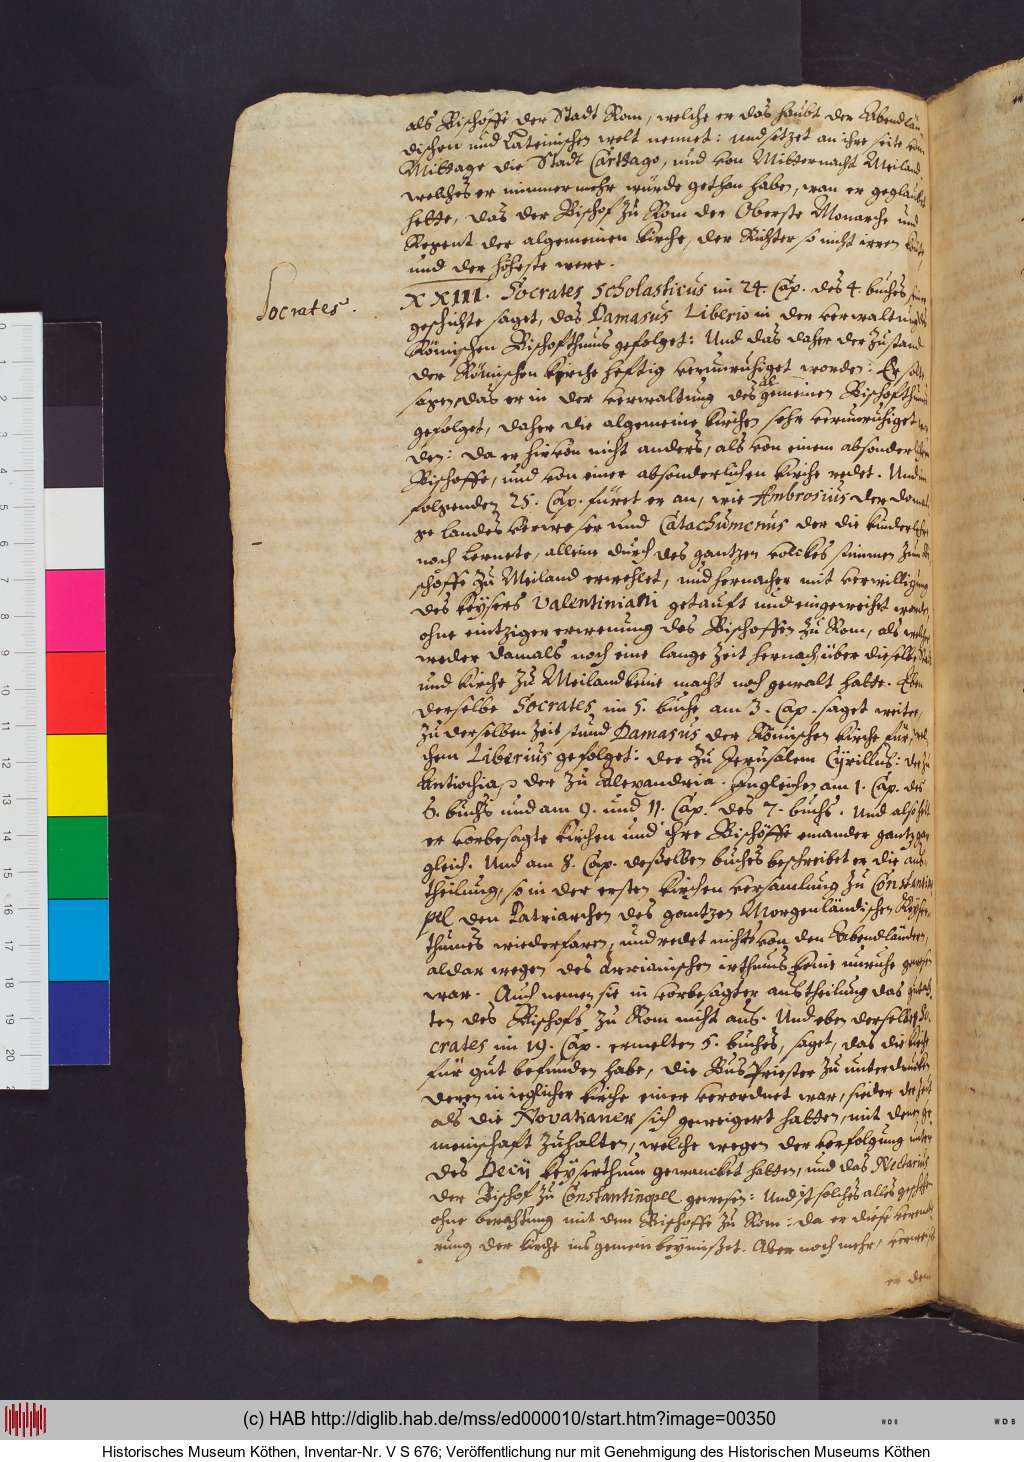 als Bischöffe der Stadt Rom, welche er das haubt der Abendlän-
dischen und Lateinischen welt nennet: und setzet an ihre seite von
Mittage die Stadt Carthago, und von Mitternacht Meiland
welches er nimmermehr würde gethan haben, wan er geglaubet
hette, das der Bischof zu Rom der Oberste Monarche und
Regent der algemeinen kirche, der Richter so nicht irren könte,
und der höheste were.
Socrates.
XXIII. Socrates Scholasticus im 24. Cap. des 4. buches seiner
geschichte saget, das Damasus Liberio in der verwaltung des
Römischen Bischofthums gefolget: Und das daher der zustand
der Römischen kirche heftig verunruhiget worden: Er solte
sagen, das er in der verwaltung des algemeinen Bischofthums
gefolget, daher die algemeine kirchen sehr verunruhiget wor-
den: da er hirvon nicht anders, als von einem absonderlichen
Bischoffe, und von einer absonderlichen kirche redet. Und im
folgenden 25. Cap. füret er an, wie Ambrosius der
landes verweser und Catachumenus der die kinderlehre
noch lernete, alleine durch des gantzen volckes stimmen zum Bi-
schoffe zu Meiland erwehlet, und hernacher mit verwilligung
des keysers Valentiniani getauft und eingeweihet worden,
ohne eintziger erwenung des Bischoffen zu Rom, als welcher
weder damals noch eine lange zeit hernach, über dieselbe Stadt
und kirche zu Meiland keine macht noch gewalt hatte. Eben
derselbe Socrates im 5. buche am 3. Cap. saget weiter,
zu derselben zeit stund Damasus der Römischen kirche für, wel-
chem Liberius gefolget: der zu Jerusalem Cyrillus: der zu
Antiochia, der zu Alexandria. Imgleichen am 1. Cap. des
6. buchs und am 9. und 11. Cap. des 7. buchs. Und also
er vorbesagte kirchen und ihre Bischöffe einander gantz
gleich. Und am 8. Cap. desselben buches beschreibet er die aus-
theilung, so in der ersten kirchen versamlung zu Constantino-
pel den Patriarchen des gantzen Morgenländischen Keyser-
thumes wiederfaren, und redet nichts von den Abendländern,
aldar wegen des Arrianischen irthums keine unruhe gewesen
war. Auch nemen sie in vorbesagter austheilung das
ten des Bischofs zu Rom nicht aus. Und eben derselbe So-
crates im 19. Cap. ermelten 5. buches, saget, das die kirche
für gut befunden habe, die Bus Priester zu unterdrucken
deren in ieglicher kirche einer verordnet war, sieder der zeit
als die Novatianer sich geweigert hatten, mit denen ge-
meinschaft zuhalten, welche wegen der verfolgung unter
des Decij keyserthum gewancket hatten, und das Nectarius
der Bischof zu Constantinopell gewesen: Und ist solches alles geschehen
ohne berathung mit dem Bischoffe zu Rom: da er diese verende-
rung der kirche ins gemein beymißet. Aber noch mehr, verweist
er dem
(c) HAB http://diglib.hab.de/mss/ed000010/start.htm?image=00350
Historisches Museum Köthen, Inventar-Nr. V S 676; Veröffentlichung nur mit Genehmigung des Historischen Museums Köthen